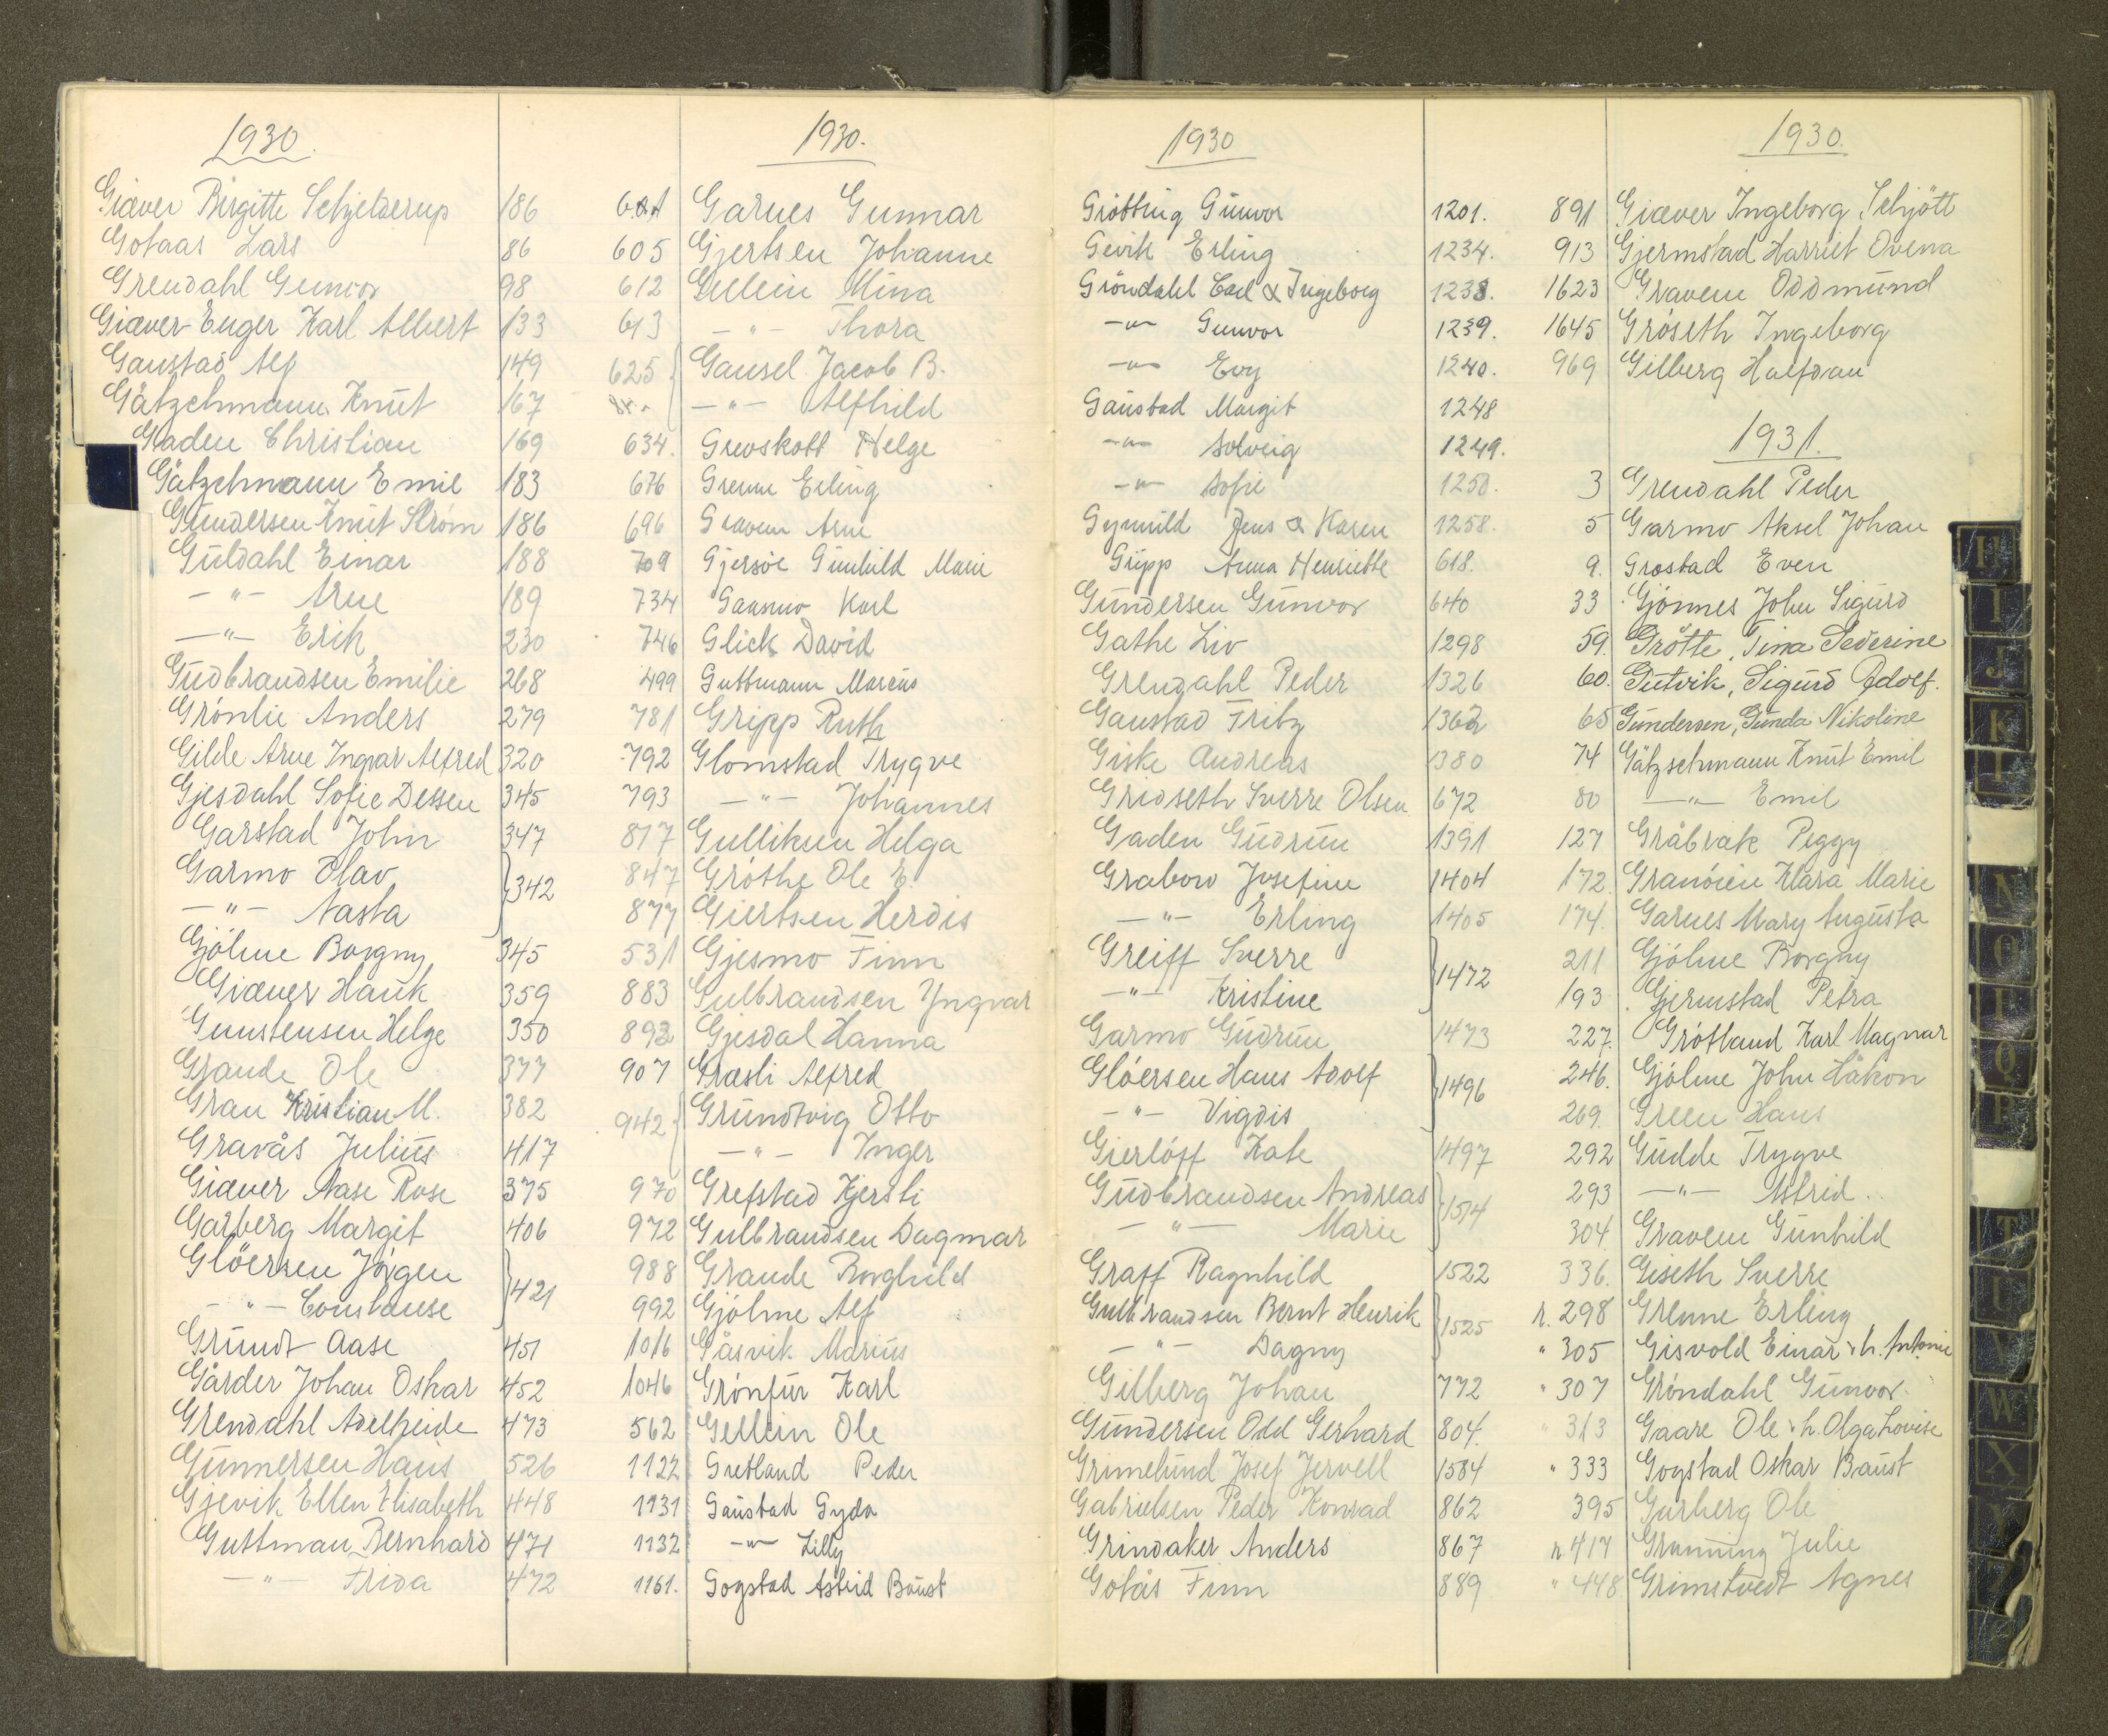 1930.
Giæver Birgitte Schjelderup 186
Gotaas Lars 86
Grendahl Gunvor 98
Giæver-Enger Karl Albert 133
Gaustad Alf 149
Gätzchmann Knut 167
Gaden Christian 169
Gätzchmann Emil 183
Gundersen Knut Strøm 186
Guldahl Einar 188
-"- Arne 189
-"- Erik 230
Gudbrandsen Emilie 268
Grönlie Anders 279
Gilde Arne Ingvar Alfred 320
Gjesdahl Sofie Dessen 345
Garstad John 347
Garmo Olav } 342
-"- Aasta
Gjölme Borgny 345
Giæver Hauk 359
Gunstensen Helge 350
Grande Ole 377
Grau Kristian M. 382
Gravås Julius 417
Giæver Aase Rose 375
Garberg Margit 406
Glöersen Jörgen } 421
-"- Constanse
Grundt Aase 451
Gårder Johan Oskar 452
Grendahl Adelheide 473
Gunnersen Hans 526
Gjevik Ellen Elisabeth 448
Guttman Bernhard 471
-"- Frida 472
1930.
Garnes Gunnar
605 Gjertsen Johanne
612 Gellein Mina
613 -"- Thora
625 { Gausel Jacob B.
-"- Alfhild
634. Grevskott Helge
676 Grenne Erling
696 Gravem Arne
709 Gjersöe Gunhild Marie
734 Gaasmo Karl
746 Glick David
499 Guttmann Marcus
781 Gripp Ruth
792 Glomstad Trygve
793 -"- Johannes
817 Gulliksen Helga
847 Gröthe Ole E.
877 Giertsen Herdis
531 Gjesmo Finn
883 Gulbrandsen Yngvar
892 Gjesdal Hanna
907 Græsli Alfred
942 { Grundtvig Otto
-"- Inger
970 Grefstad Kjersti
972 Gulbrandsen Dagmar
988 Grande Borghild
992 Gjölme Alf
1016 Gåsvik Marius
1046 Grönfur Karl
562 Gellein Ole
1122 Gretland Peder
1131 Gaustad Gyda
1132 -"- Lilly
1161. Gogstad Astrid Baust
1930
Grötting Gunvor 1201.
Gevik Erling 1234.
Gröndahl Carl & Ingeborg 1238.
-"- Gunvor 1239.
-"- Evy 1240.
Gaustad Margit 1248
-"- Solveig 1249.
-"- Sofie 1250.
Gymnild Jens & Karen 1258.
Gripp Anna Henriette 618.
Gundersen Gunvor 640
Gathe Liv 1298
Grendahl Peder 1326
Gaustad Fritz 1362
Giske Andreas 1380
Gridseth Sverre Olsen 672
Gaden Gudrun 1391
Grabow Josefine 1404
-"- Erling 1405
Greiff Sverre } 1472
-"- Kristine
Garmo Gudrun 1473
Glöersen Hans Adolf } 1496
-"- Vigdis
Gierlöff Kate 1497
Gudbrandsen Andreas } 1514
-"- Marie
Graff Ragnhild 1522
Gulbrandsen Bernt Henrik } 1525
-"- Dagny
Gilberg Johan 772
Gundersen Odd Gerhard 804.
Grimelund Josef Jervell 1584
Gabrielsen Peder Konrad 862
Grindaker Anders 867
Gotås Finn 889
1930.
891 Giæver Ingeborg Schjött
913 Gjermstad Harriet Ovena
1623 Gravem Oddmund
1645 Gröseth Ingeborg
969 Gilberg Halfdan
1931.
3 Grendahl Peder
5 Garmo Aksel Johan
9. Grostad Even
33 Gjönnes John Sigurd
59. Grötte, Tina Pederine
60. Gutvik, Sigurd Adolf.
65 Gundersen, Gunda Nikoline
74 Gätzschmann Knut Emil
80 -"- Emil
127 Gråbræk Peggy
172. Granöien Klara Marie
174. Garnes Mary Augusta
211 Gjölme Borgny
193 Gjermstad Petra
227. Grötland Karl Magnar
246. Gjölme John Håkon
269. Green Hans
292 Gudde Trygve
293 -"- Astrid
304. Gravem Gunhild
336. Giseth Sverre
n. 298 Grenne Erling
" 305 Gisvold Einar & h. Antonie
" 307 Gröndahl Gunvor
" 313 Gaare Ole & h. Olga Lovise
" 333 Gogstad Oskar Baust
395 Garberg Ole
n 417 Grunning Julie
" 448 Grimstvedt Agnes
H
I
J
K
L
N
O
P
Q
R
T
U
V
W
X
Y
Z